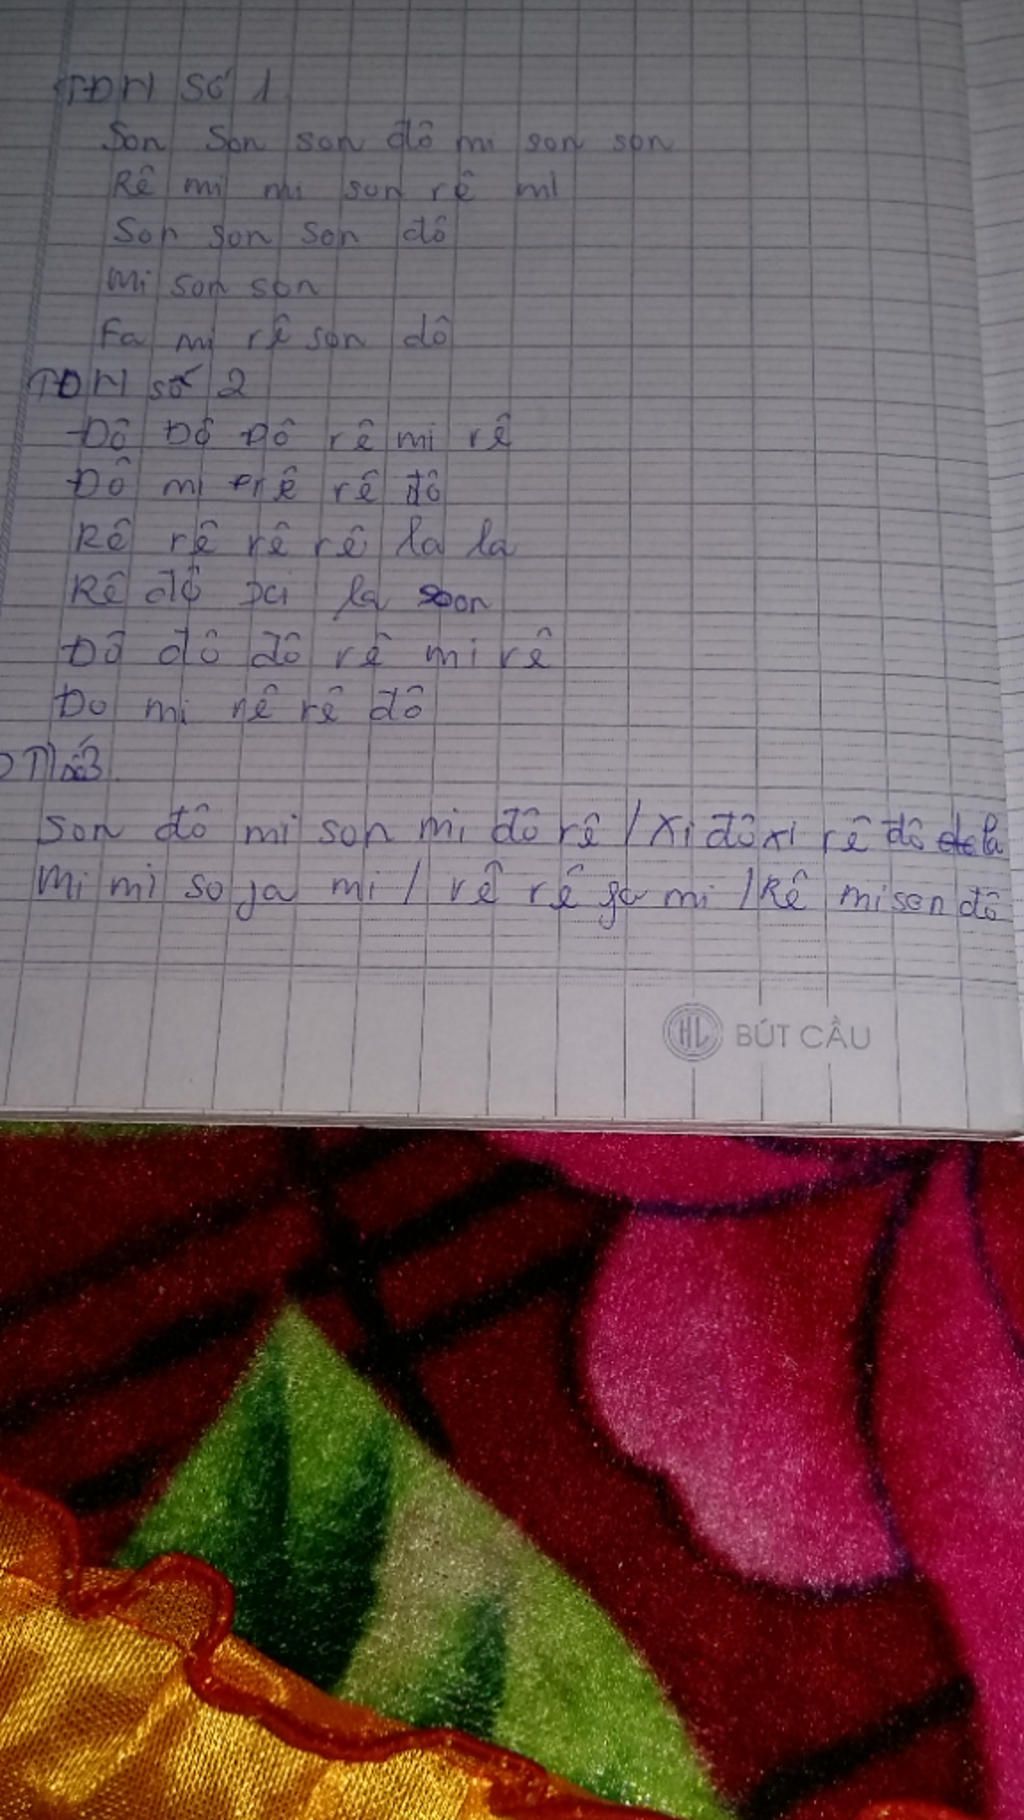 TĐN số 1
Son Son son đô mi son son
Rê mi mi son rê mi
Son son son đô
Mi son son
Fa mi rê son đô
TĐN số 2
Đô Đô Đô rê mi rê
Đô mi rê rê đô
Rê rê rê rê la la
Rê đô la son
Đô đô đô rê mi rê
Đo mi rê rê đô
Son đô mi son mi đô rê / Xi đô xi rê đô la
Mi mi so fa mi / rê rê fa mi / Rê mi son đô
HL BÚT CẦU